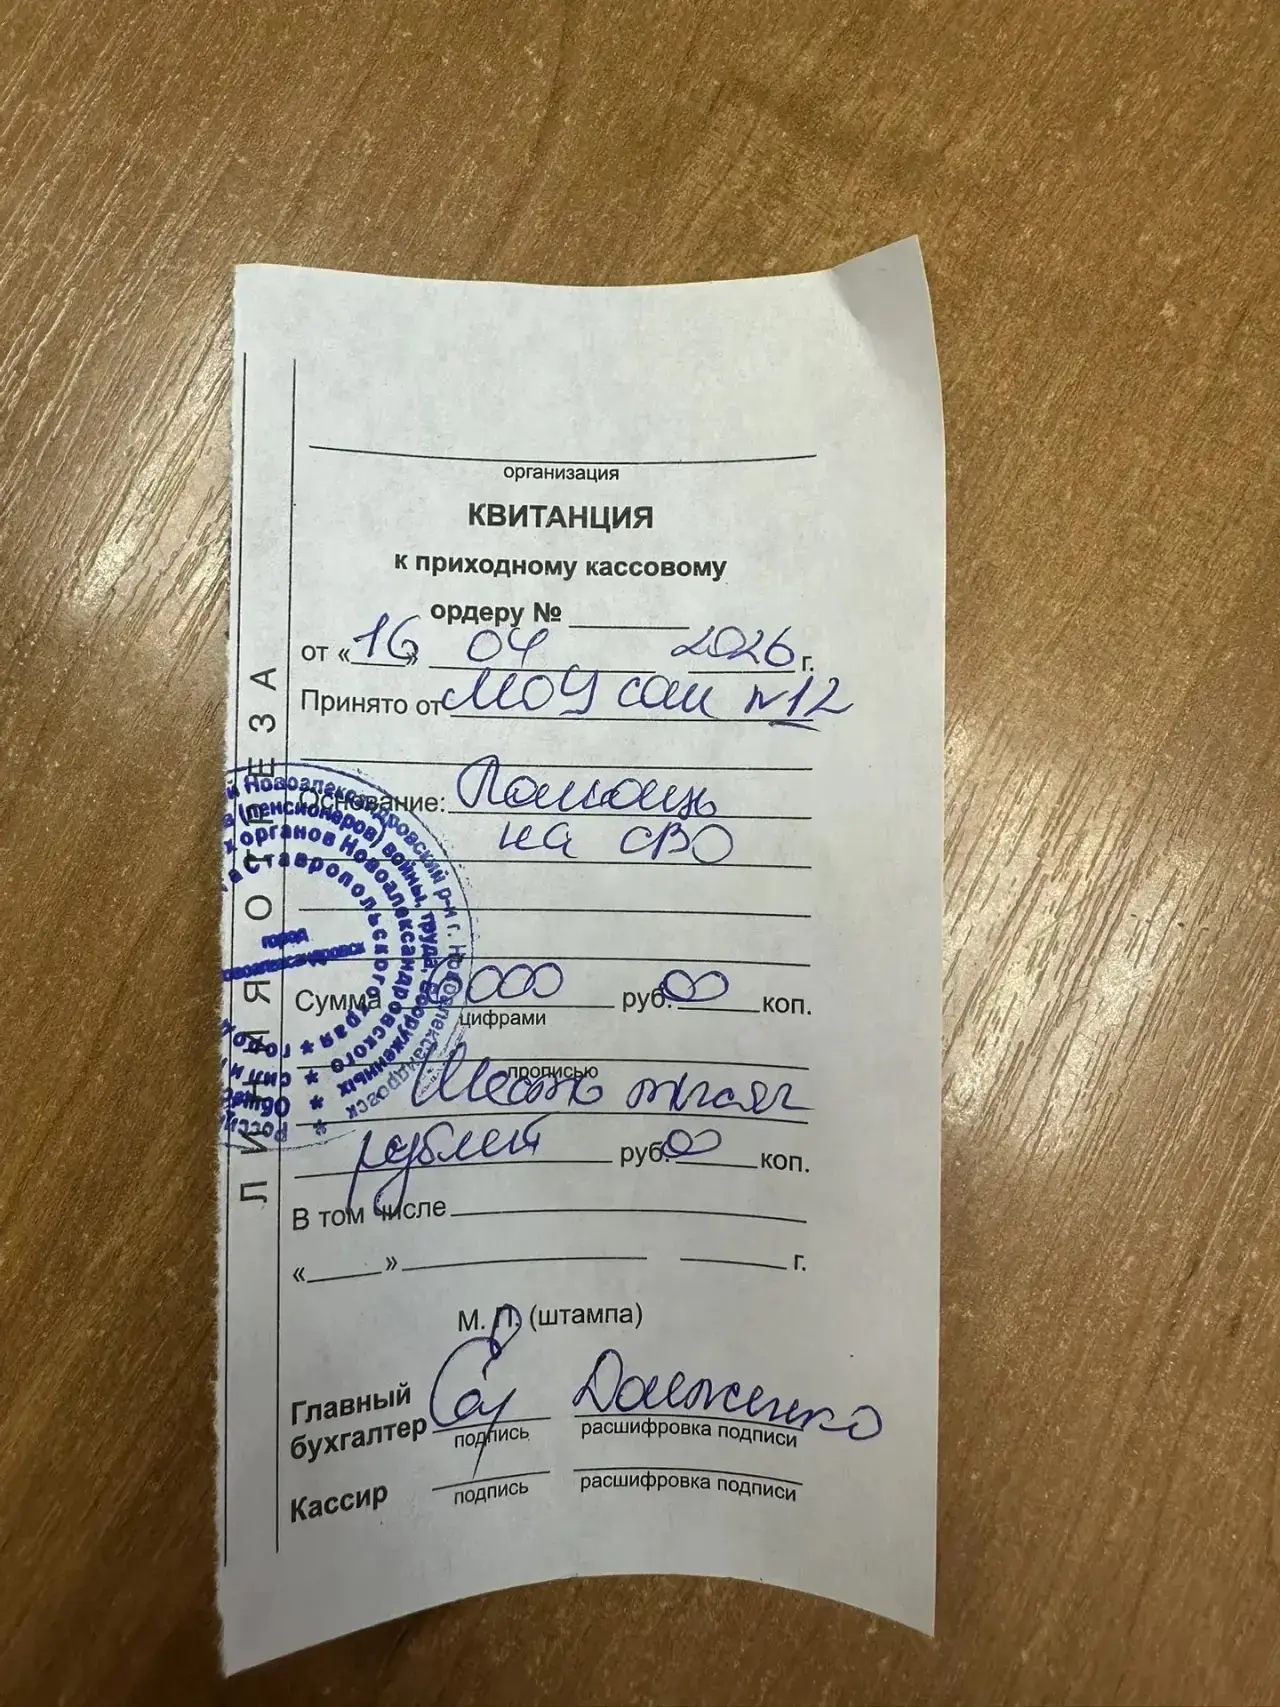 организация
КВИТАНЦИЯ
к приходному кассовому
ордеру №
от «16» 04 2026 г.
Принято от МОУ сош №12
Основание: Помощь
на СВО
Сумма 6000 руб. 00 коп.
цифрами
прописью
Шесть тысяч
рублей руб. 00 коп.
В том числе
« » г.
М. П. (штампа)
Главный
бухгалтер
подпись
Долженко
расшифровка подписи
Кассир
подпись
расшифровка подписи
ЛИНИЯ ОТРЕЗА
Новоалександровский р-н г. Новоалександровск
(пенсионеров) войны, труда, Вооруженных сил и
органов Новоалександровского
Ставропольского края
город